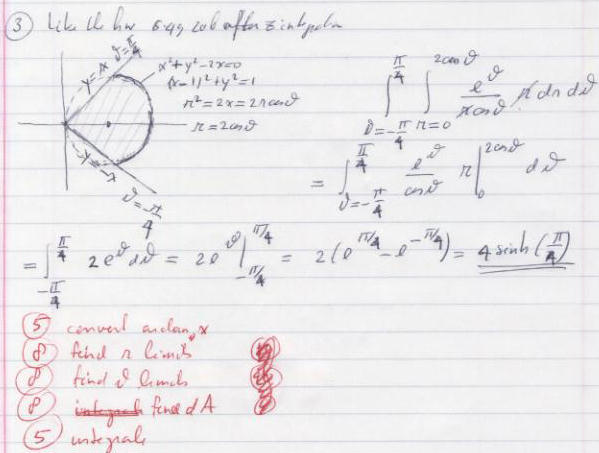 ③ Like the hw 6.49 20b after z integration
y=x ϑ=π/4
x²+y²-2x=0
(x-1)²+y²=1
r²=2x=2r cosϑ
r=2cosϑ
y=-x
ϑ=-π/4
∫_{ϑ=-π/4}^{π/4} ∫_{r=0}^{2cosϑ} e^ϑ/(r cosϑ) · r dr dϑ
= ∫_{ϑ=-π/4}^{π/4} e^ϑ/cosϑ r |_0^{2cosϑ} dϑ
= ∫_{-π/4}^{π/4} 2e^ϑ dϑ = 2e^ϑ |_{-π/4}^{π/4} = 2(e^{π/4} - e^{-π/4}) = 4 sinh(π/4)
⑤ convert arctan, x
⑧ find r limits
⑧ find ϑ limits
⑧ find dA
⑤ integrate